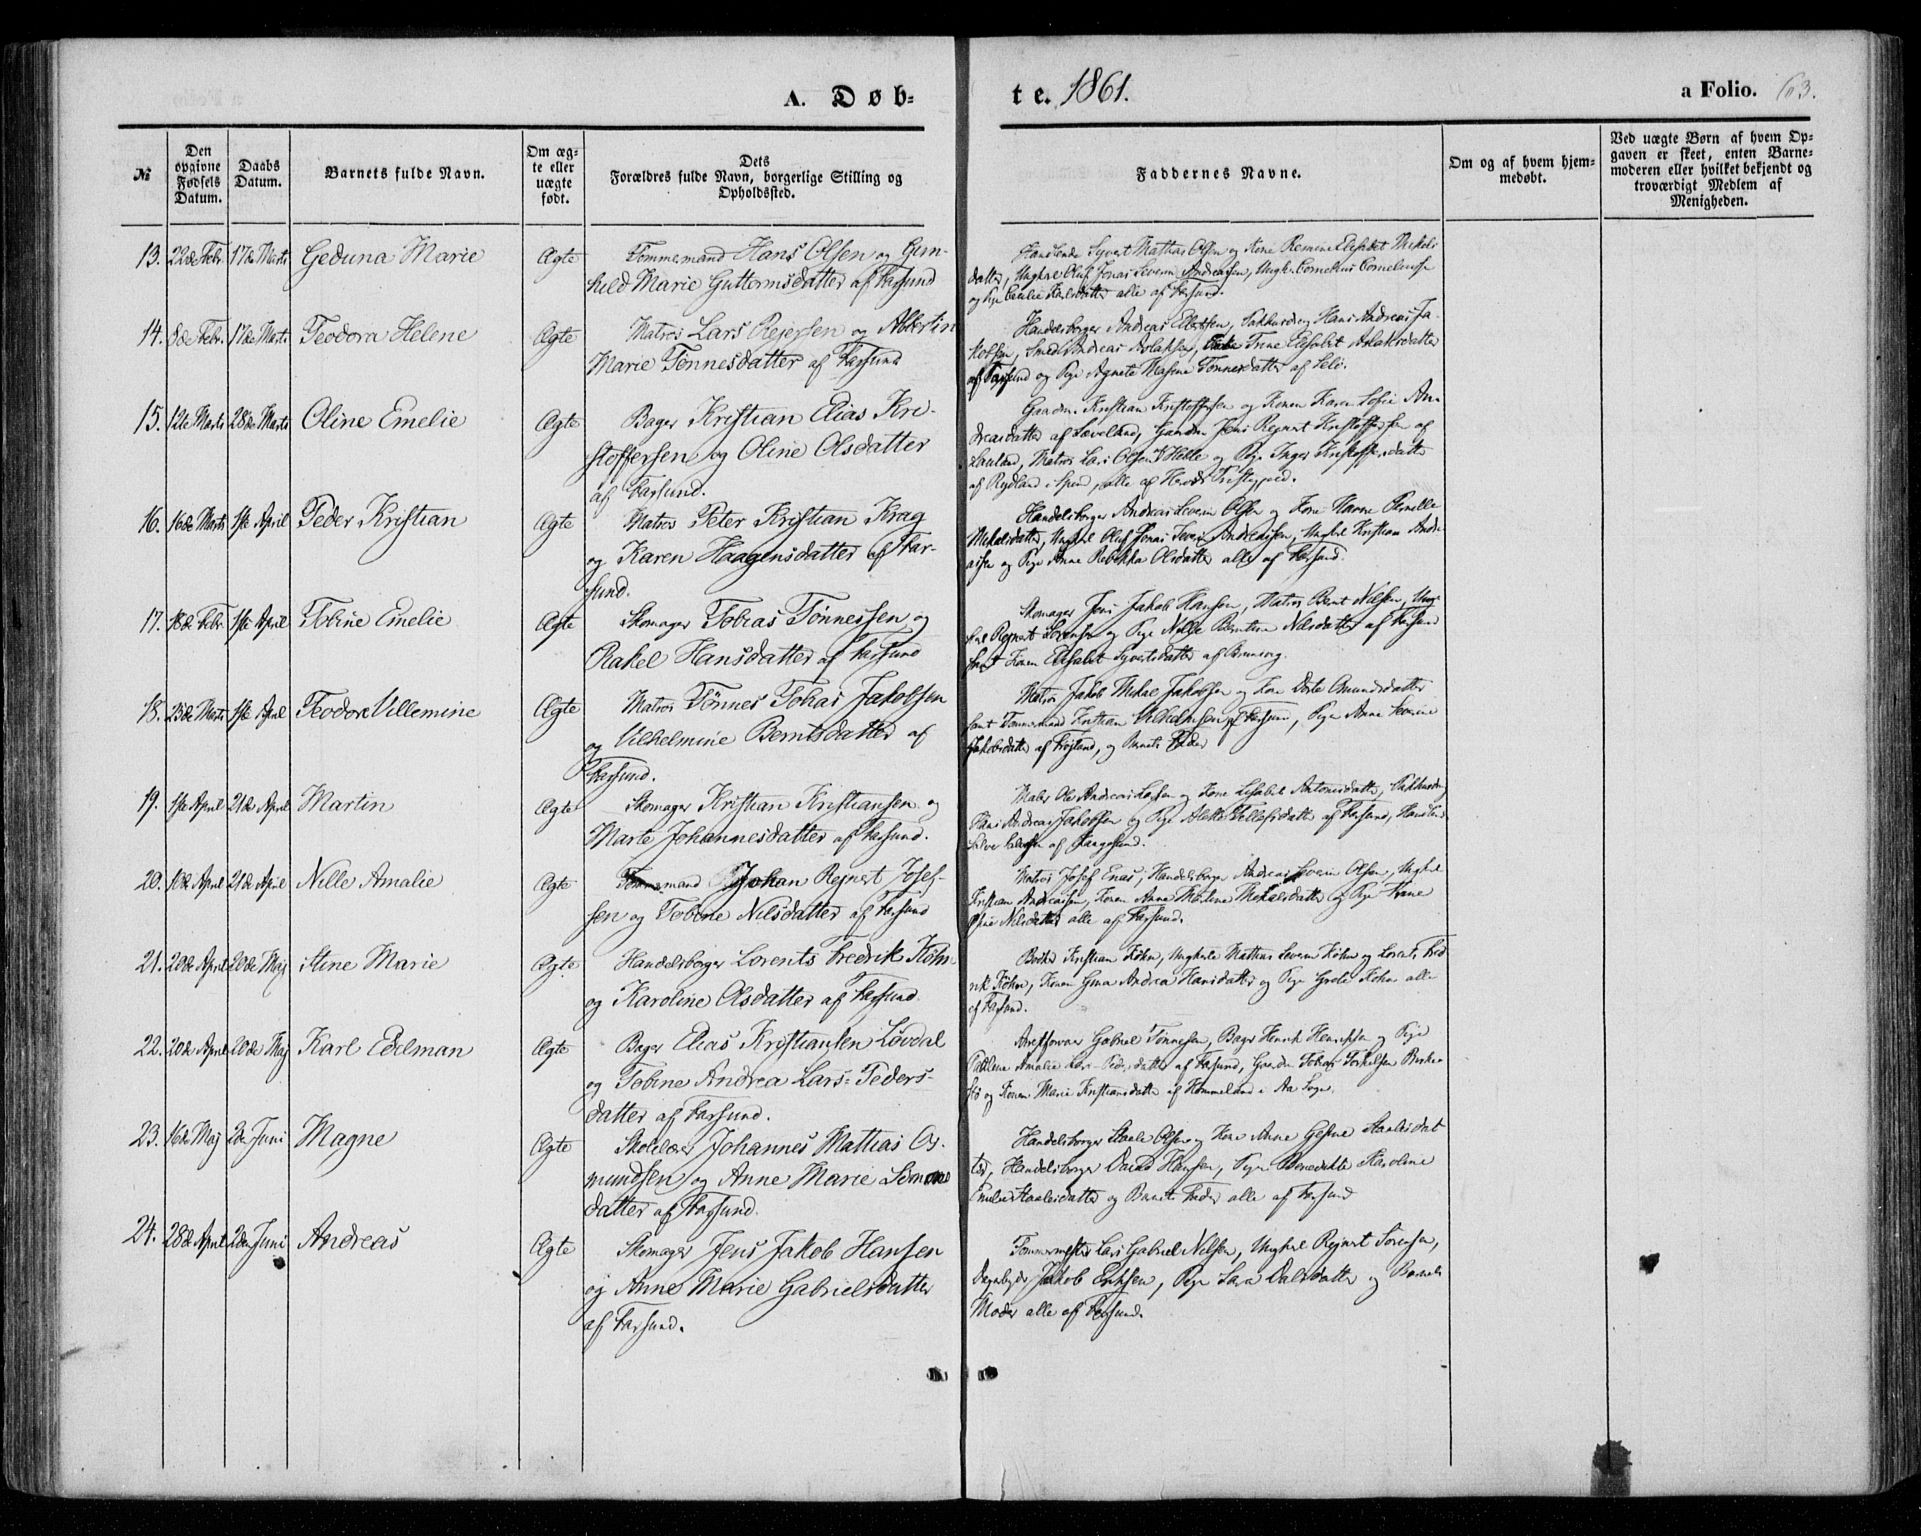 A. Døb-
te. 1861.
a Folio. 63.
№
Den opgivne Fødsels Datum.
Daabs Datum.
Barnets fulde Navn.
Om ægte eller uægte født.
Dets
Forældres fulde Navn, borgerlige Stilling og
Opholdssted.
Faddernes Navne.
Om og af hvem hjem-
medøbt.
Ved uægte Børn af hvem Op-
gaven er skeet, enten Barne-
moderen eller hvilket bekjendt og
troværdigt Medlem af
Menigheden.
13. 22de Febr. 17de Marts Geduna Marie Ægte Tømmermand Hans Olsen og Gun-
hild Marie Guttormsdatter af Farsund
Syvert Mathias Olsen og Kone Elisabet
datter, Ungkal Oluf Jonas Severin Andreasen, Ungk. Cornelius
og Pige Karlsdatter alle af Farsund.
14. 8de Febr. 17de Marts Teodora Helene Ægte Matros Lars Rejersen og Albertin
Marie Tønnesdatter af Farsund
Handelsborger Andreas Hans Andreas Ja-
kobsen, Smed Andreas Aslaksen, Trine Elisabet Aslaksdatter
af Farsund og Pige Agnete Tønnesdatter af
15. 12te Marts 28de Marts Oline Emelie Ægte Bager Kristian Elias Kri-
stoffersen og Oline Olsdatter
af Farsund.
Gaardm. Kristian Kristoffersen og Konen Karen Sofie An-
dreasdatter af Gaardm. Jens Rejnert Kristoffersen af
Matros Lars Olsen Helle og Pige Inger Kristoffersdatter
af Rydland i alle af Herads Præstegjæld.
16. 16de Marts 1ste April Peder Kristian Ægte Matros Peter Kristian Krag
og Karen Haagensdatter af Far-
sund.
Handelsborger Andreas Severin Olsen og Kone Hanne Pernille
Mekalsdatter, Ungkal Oluf Jonas Severin Andreasen, Ungkal Kristian Andre-
asen og Pige Anne Rebekka Olsdatter alle af Farsund.
17. 18de Febr. 1ste April Tobine Emelie Ægte Skomager Tobias Tønnessen og
Rakel Hansdatter af Farsund
Skomager Jens Jakob Hansen, Matros Bernt Nilsen, Ung-
kal Rejnert Sørensen og Pige Nille Berntine Nilsdatter af Farsund
samt Konen Elisabet Syvertsdatter af
18. 25de Marts 1ste April Teodora Villemine Ægte Matros Tønnes Tobias Jakobsen
og Vilhelmine Berntsdatter af
Farsund.
Matros Jakob Mekal Jakobsen og Kone Dorte Omundsdatter
samt Tømmermand Kristian Vilhelmsen af Farsund, Pige Anne Severine
Jakobsdatter af og Barnets Fader
19. 1ste April 21de April Martin Ægte Skomager Kristian Kristiansen og
Marte Johannesdatter af Farsund.
Maler Ole Andreas og Kone Elisabet Antonisdatter,
Hans Andreas Jakobsen og Pige Alette Tollefsdatter af Farsund,
af
20. 10de April 21de April Nille Amalie Ægte Tømmermand Johan Rejnert Josef-
sen og Tobine Nilsdatter af Farsund
Matros Josef Enas, Handelsborger Andreas Severin Olsen, Ungkal
Kristian Andreasen, Konen Anne Martine Mekalsdatter og Pige
Nilsdatter alle af Farsund.
21. 20de April 20de Maj Stine Marie Ægte Handelsborger Lorents Fredrik Køhn
og Karoline Olsdatter af Farsund.
Bødker Kristian Køhn, Ungkarle Mathias Severin Køhn og Lorents Fred-
rik Køhn, Konen Gina Andrea Hansdatter og Pige Grete Køhn alle
af Farsund.
22. 20de April 20de Maj Karl Edelman Ægte Bager Elias Kristiansen Løvdal
og Tobine Andrea Lars-Peders-
datter af Farsund.
Arrestforvar Gabriel Tønnesen, Bager Henrik Henriksen og Pige
Amalie Lars-Pedersdatter af Farsund, Gaardm. Tobias Torkelsen
og Konen Marie Kristiansdatter af i Aa Sogn.
23. 16de Maj 2den Juni Magne Ægte Skolelærer Johannes Mattias Os-
mundsen og Anne Marie
datter af Farsund.
Handelsborger Staale Olsen og Kone Anne Gesine Staalesdat-
ter, Handelsborger David Hansen, Pige Benedikte Karoline
Emilie Staalesdatter og Barnets Fader alle af Farsund
24. 28de April 2den Juni Andreas Ægte Skomager Jens Jakob Hansen
og Anne Marie Gabrielsdatter
af Farsund.
Tømmermester Lars Gabriel Nilsen, Ungkal Rejnert Sørensen,
Jakob Eriksen, Pige Sara og Barnets
Moder alle af Farsund.